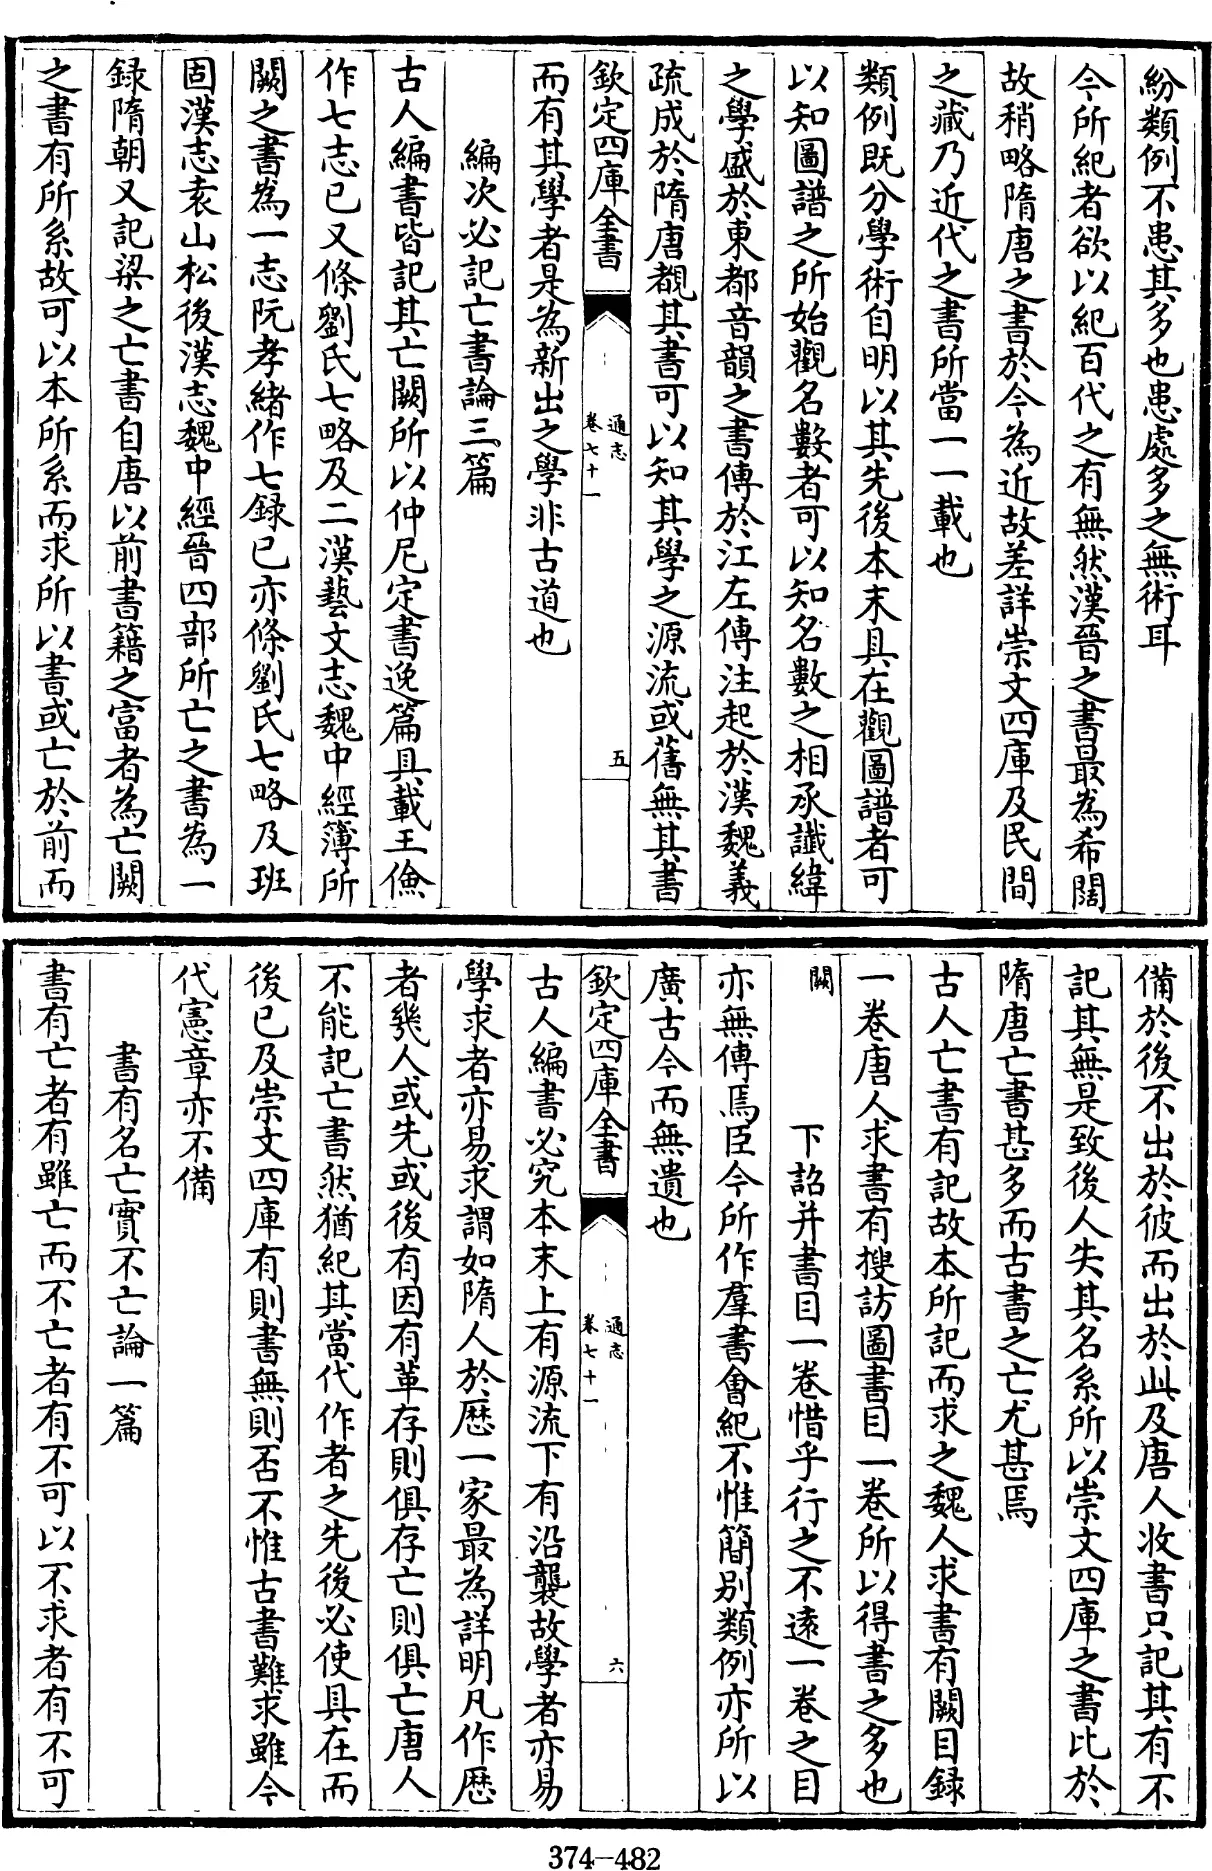 紛類例不患其多也患處多之無術耳
今所紀者欲以紀百代之有無然漢晉之書最為希闊
故稍略隋唐之書於今為近故差詳崇文四庫及民間
之藏乃近代之書所當一一載也
類例既分學術自明以其先後本末具在觀圖譜者可
以知圖譜之所始觀名數者可以知名數之相承讖緯
之學盛於東都音韻之書傳於江左傳注起於漢魏義
疏成於隋唐覩其書可以知其學之源流或舊無其書
欽定四庫全書
通志
卷七十一
五
而有其學者是為新出之學非古道也
編次必記亡書論三篇
古人編書皆記其亡闕所以仲尼定書逸篇具載王儉
作七志已又條劉氏七略及二漢藝文志魏中經簿所
闕之書為一志阮孝緒作七錄已亦條劉氏七略及班
固漢志袁山松後漢志魏中經晉四部所亡之書為一
錄隋朝又記梁之亡書自唐以前書籍之富者為亡闕
之書有所系故可以本所系而求所以書或亡於前而
備於後不出於彼而出於此及唐人收書只記其有不
記其無是致後人失其名系所以崇文四庫之書比於
隋唐亡書甚多而古書之亡尤甚焉
古人亡書有記故本所記而求之魏人求書有闕目録
一卷唐人求書有搜訪圖書目一卷所以得書之多也
闕 下詔并書目一卷惜乎行之不逺一卷之目
亦無傳焉臣今所作羣書會紀不惟簡别類例亦所以
廣古今而無遺也
欽定四庫全書
通志
卷七十一
六
古人編書必究本末上有源流下有沿襲故學者亦易
學求者亦易求謂如隋人於歴一家最為詳明凡作歴
者幾人或先或後有因有革存則俱存亡則俱亡唐人
不能記亡書然猶紀其當代作者之先後必使具在而
後已及崇文四庫有則書無則否不惟古書難求雖今
代憲章亦不備
書有名亡實不亡論一篇
書有亡者有雖亡而不亡者有不可以不求者有不可
374-482